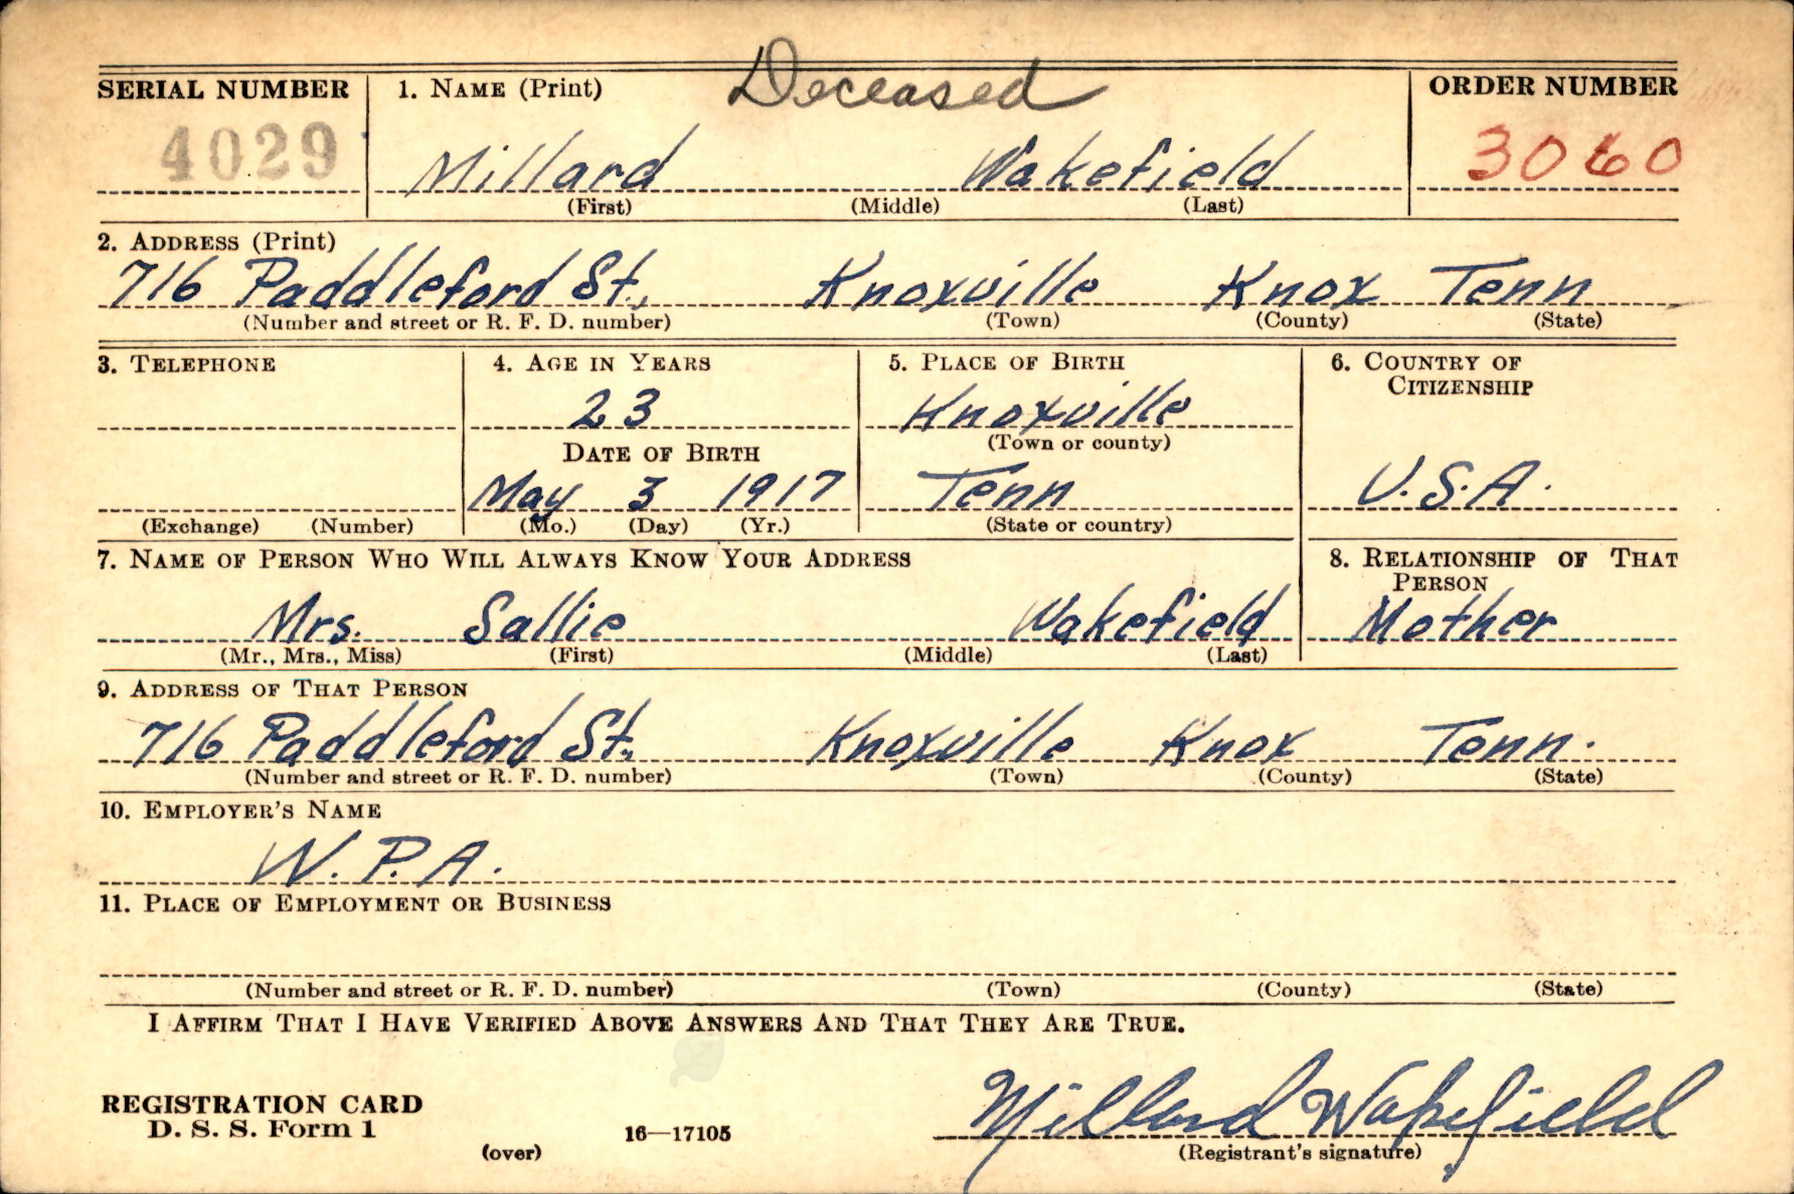 Deceased
SERIAL NUMBER 1. NAME (Print) ORDER NUMBER
4029 Millard Wakefield 3060
(First) (Middle) (Last)
2. ADDRESS (Print)
716 Paddleford St., Knoxville Knox Tenn
(Number and street or R. F. D. number) (Town) (County) (State)
3. TELEPHONE 4. AGE IN YEARS 5. PLACE OF BIRTH 6. COUNTRY OF
CITIZENSHIP
23 Knoxville
DATE OF BIRTH (Town or county)
May 3 1917 Tenn U.S.A.
(Exchange) (Number) (Mo.) (Day) (Yr.) (State or country)
7. NAME OF PERSON WHO WILL ALWAYS KNOW YOUR ADDRESS 8. RELATIONSHIP OF THAT
PERSON
Mrs. Sallie Wakefield Mother
(Mr., Mrs., Miss) (First) (Middle) (Last)
9. ADDRESS OF THAT PERSON
716 Paddleford St. Knoxville Knox Tenn.
(Number and street or R. F. D. number) (Town) (County) (State)
10. EMPLOYER'S NAME
W.P.A.
11. PLACE OF EMPLOYMENT OR BUSINESS
(Number and street or R. F. D. number) (Town) (County) (State)
I AFFIRM THAT I HAVE VERIFIED ABOVE ANSWERS AND THAT THEY ARE TRUE.
REGISTRATION CARD
D. S. S. Form 1 16—17105 Millard Wakefield
(over) (Registrant's signature)